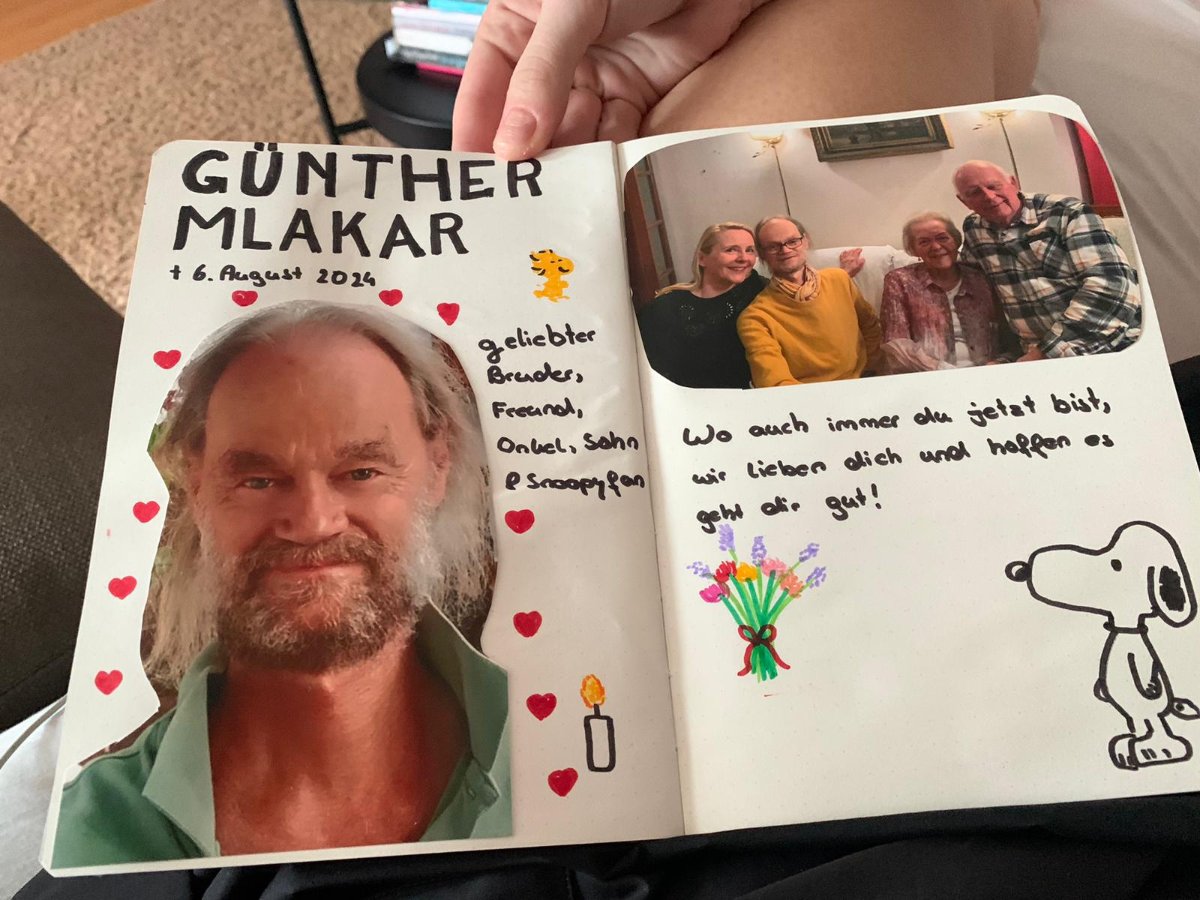 GÜNTHER
MLAKAR
† 6. August 2024
geliebter
Bruder,
Freund,
Onkel, Sohn
& Snoopyfan
Wo auch immer du jetzt bist,
wir lieben dich und hoffen es
geht dir gut!